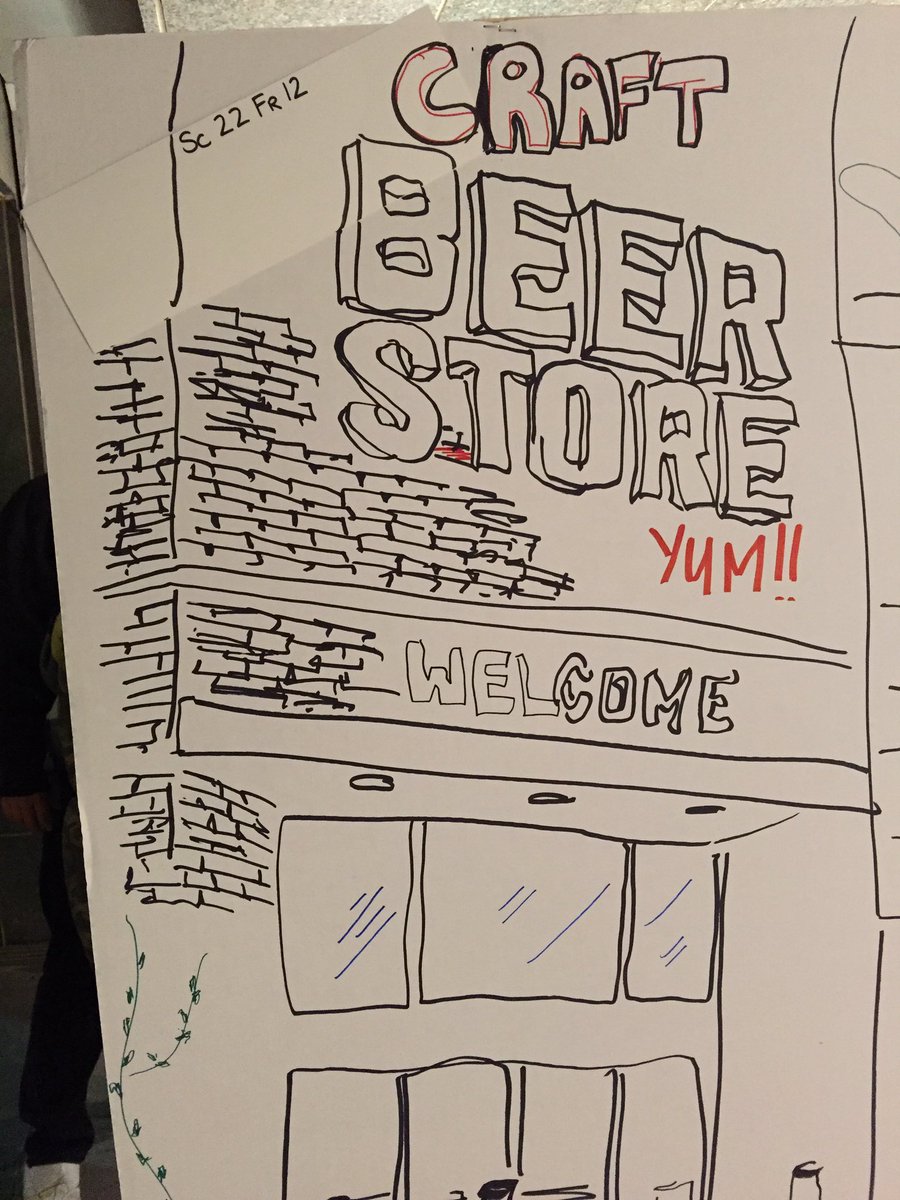 Sc 22 Fr 12
CRAFT
BEER
STORE
YUM!!
WELCOME